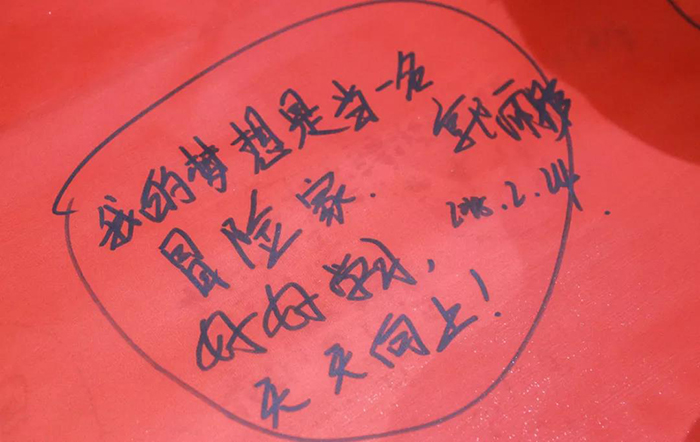 我的梦想是当一名
冒险家.
好好学习,
天天向上!
2018.2.24